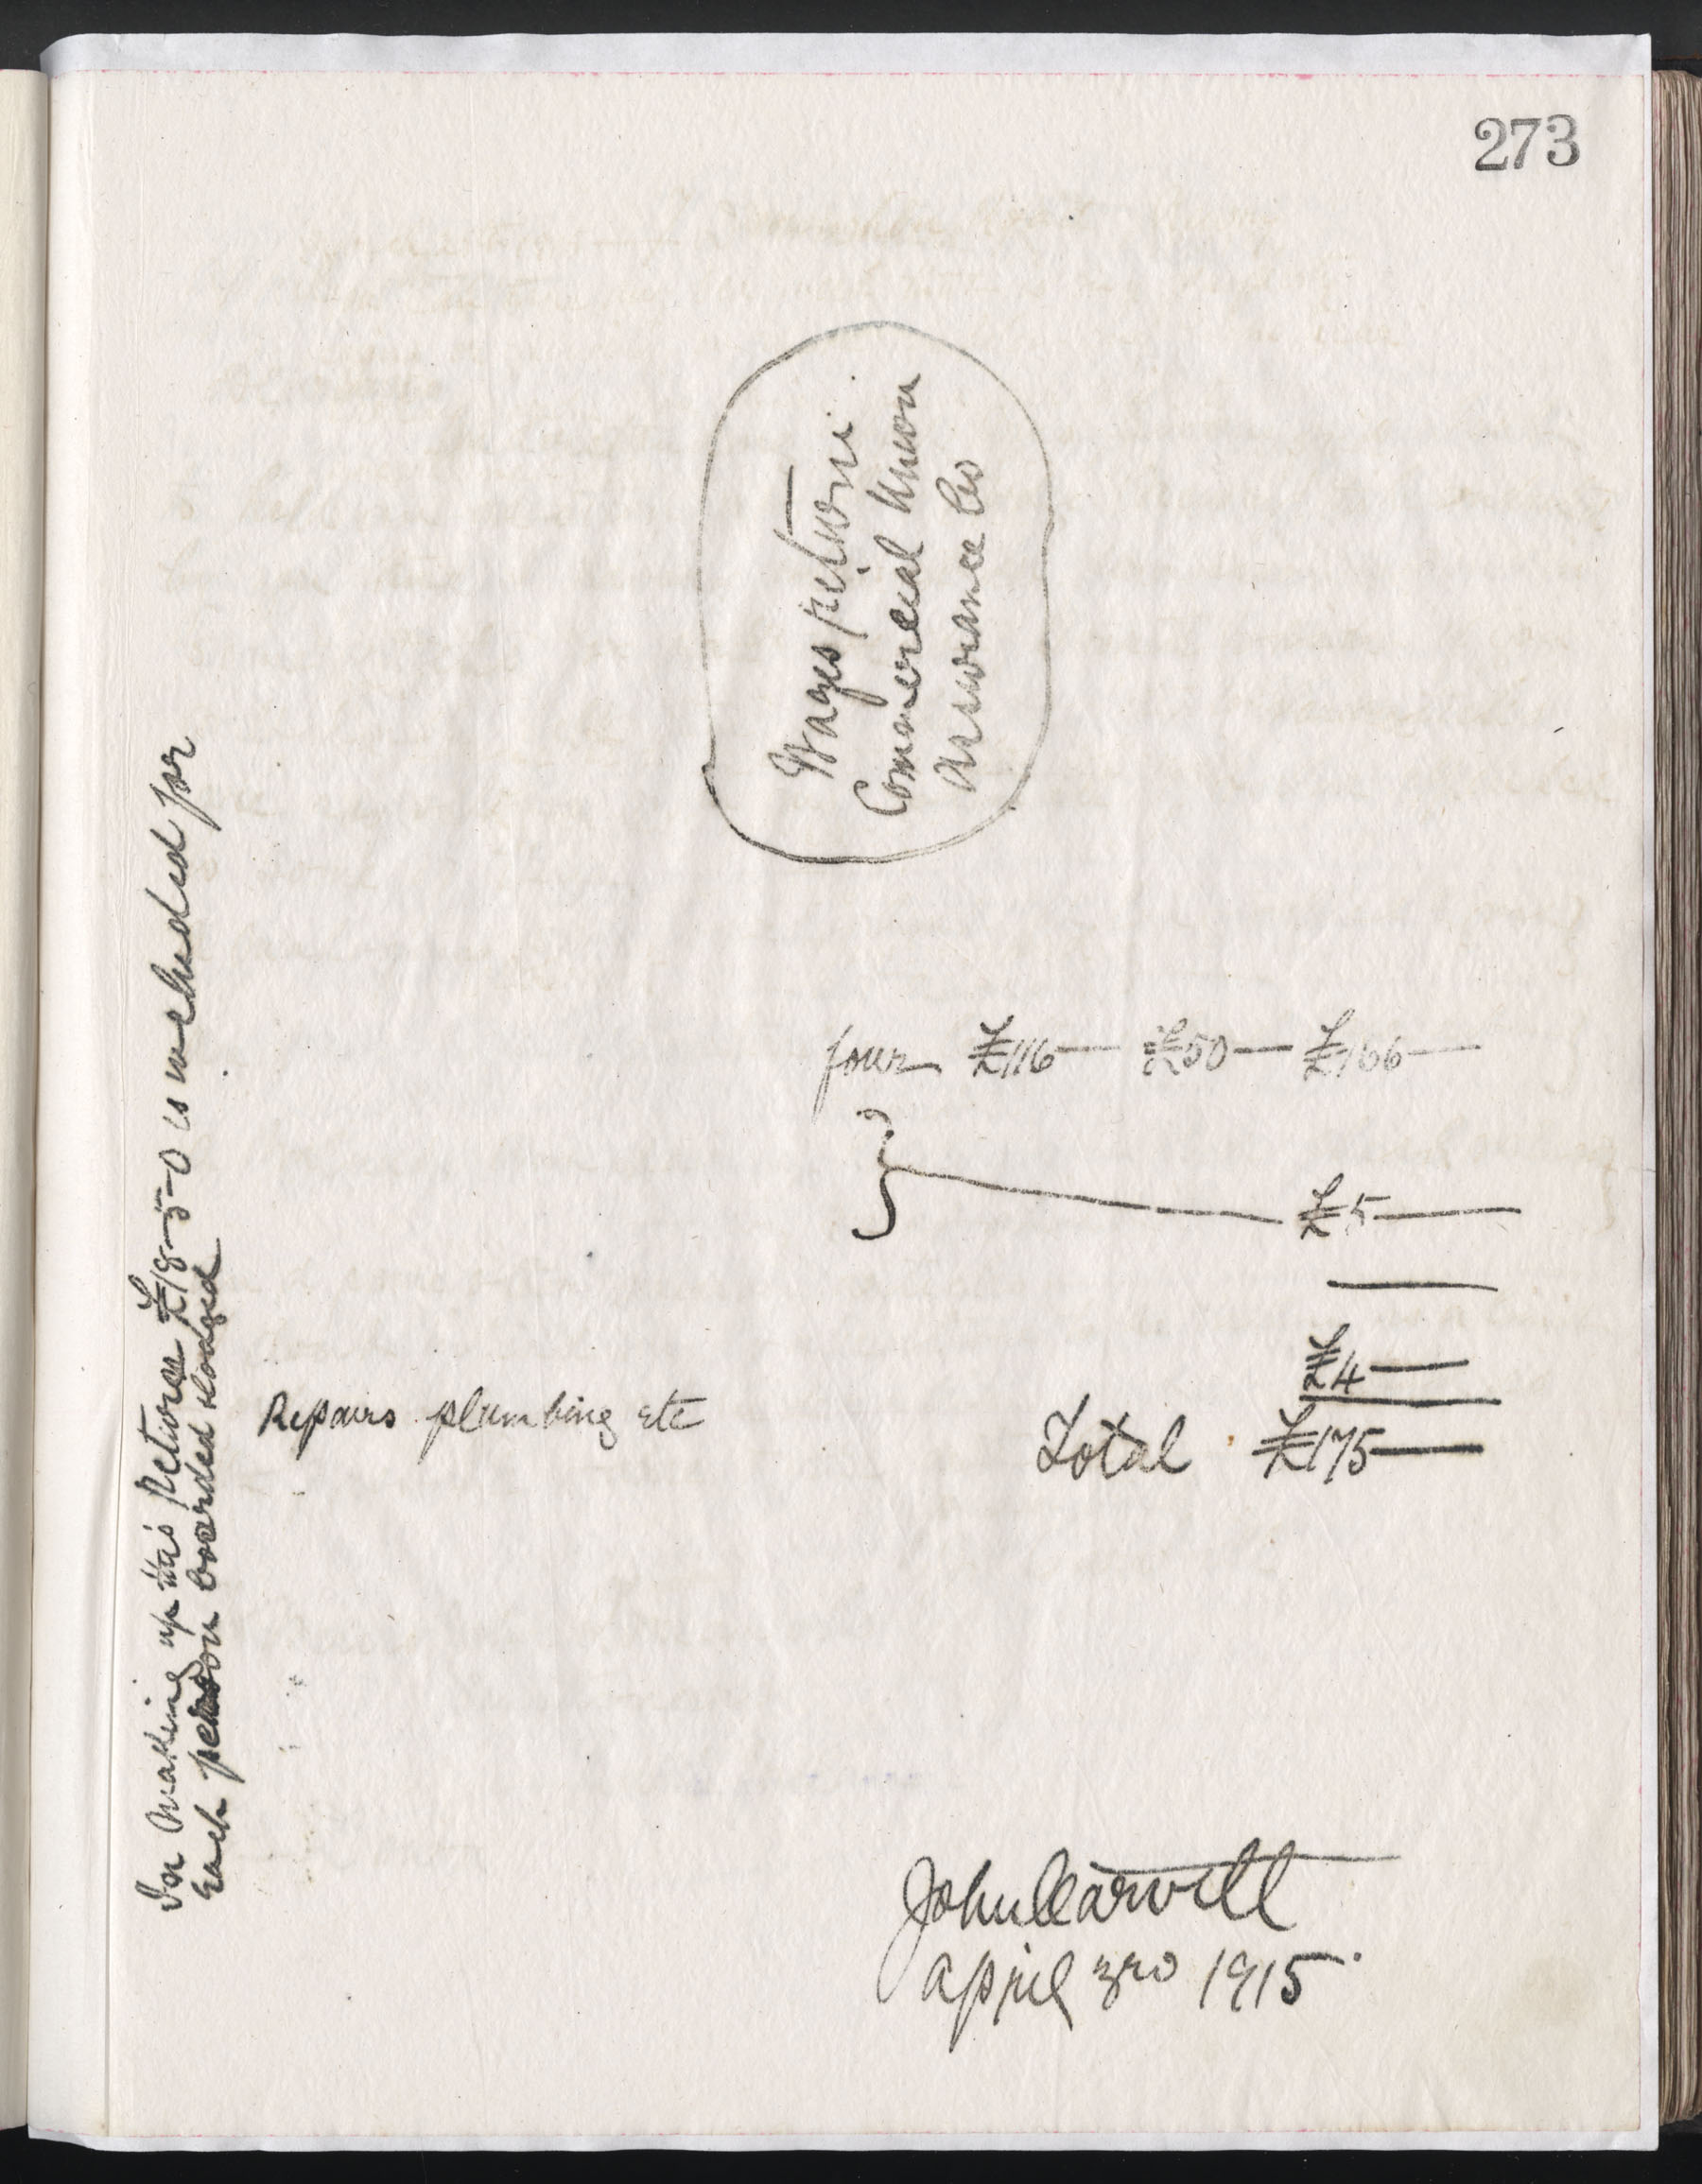 273
Wages return
Commercial Union
Assurance Co
four £116— £50— £166—
£5—
£4—
Repairs plumbing etc
Total £175—
In making up this return £18-5-0 is included for
Each person boarded & lodged
John Carvill
April 3rd 1915